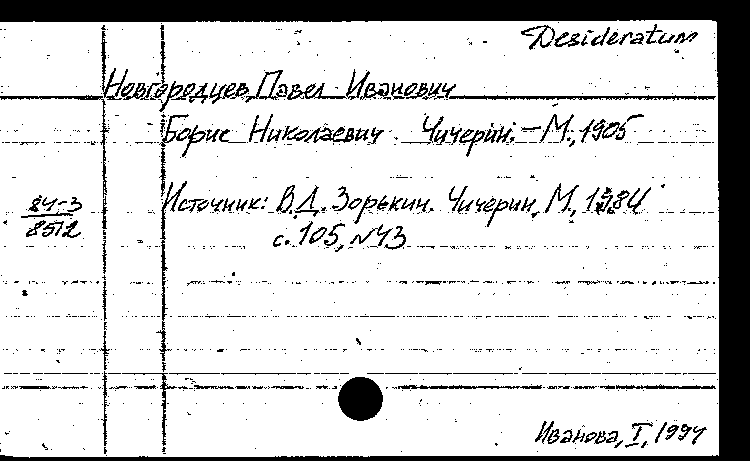 Desideratum
Новгородцев, Павел Иванович
Борис Николаевич Чичерин. – М., 1905
84-3
8512
Источник: В.Д. Зорькин. Чичерин, М., 1984
с. 105, N43
Иванова, I, 1994